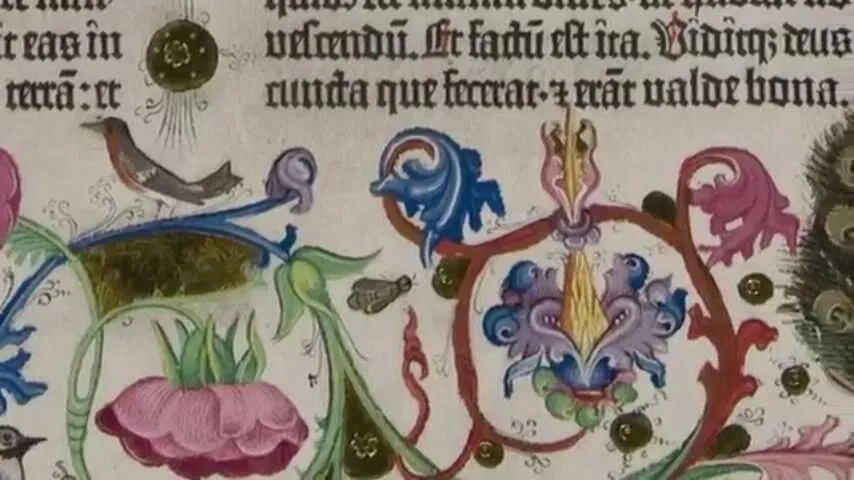 it eas in
terrā : et
vescendū. Et factū est ita. Viditq; deus
cuncta que fecerat · ⁊ erāt valde bona.